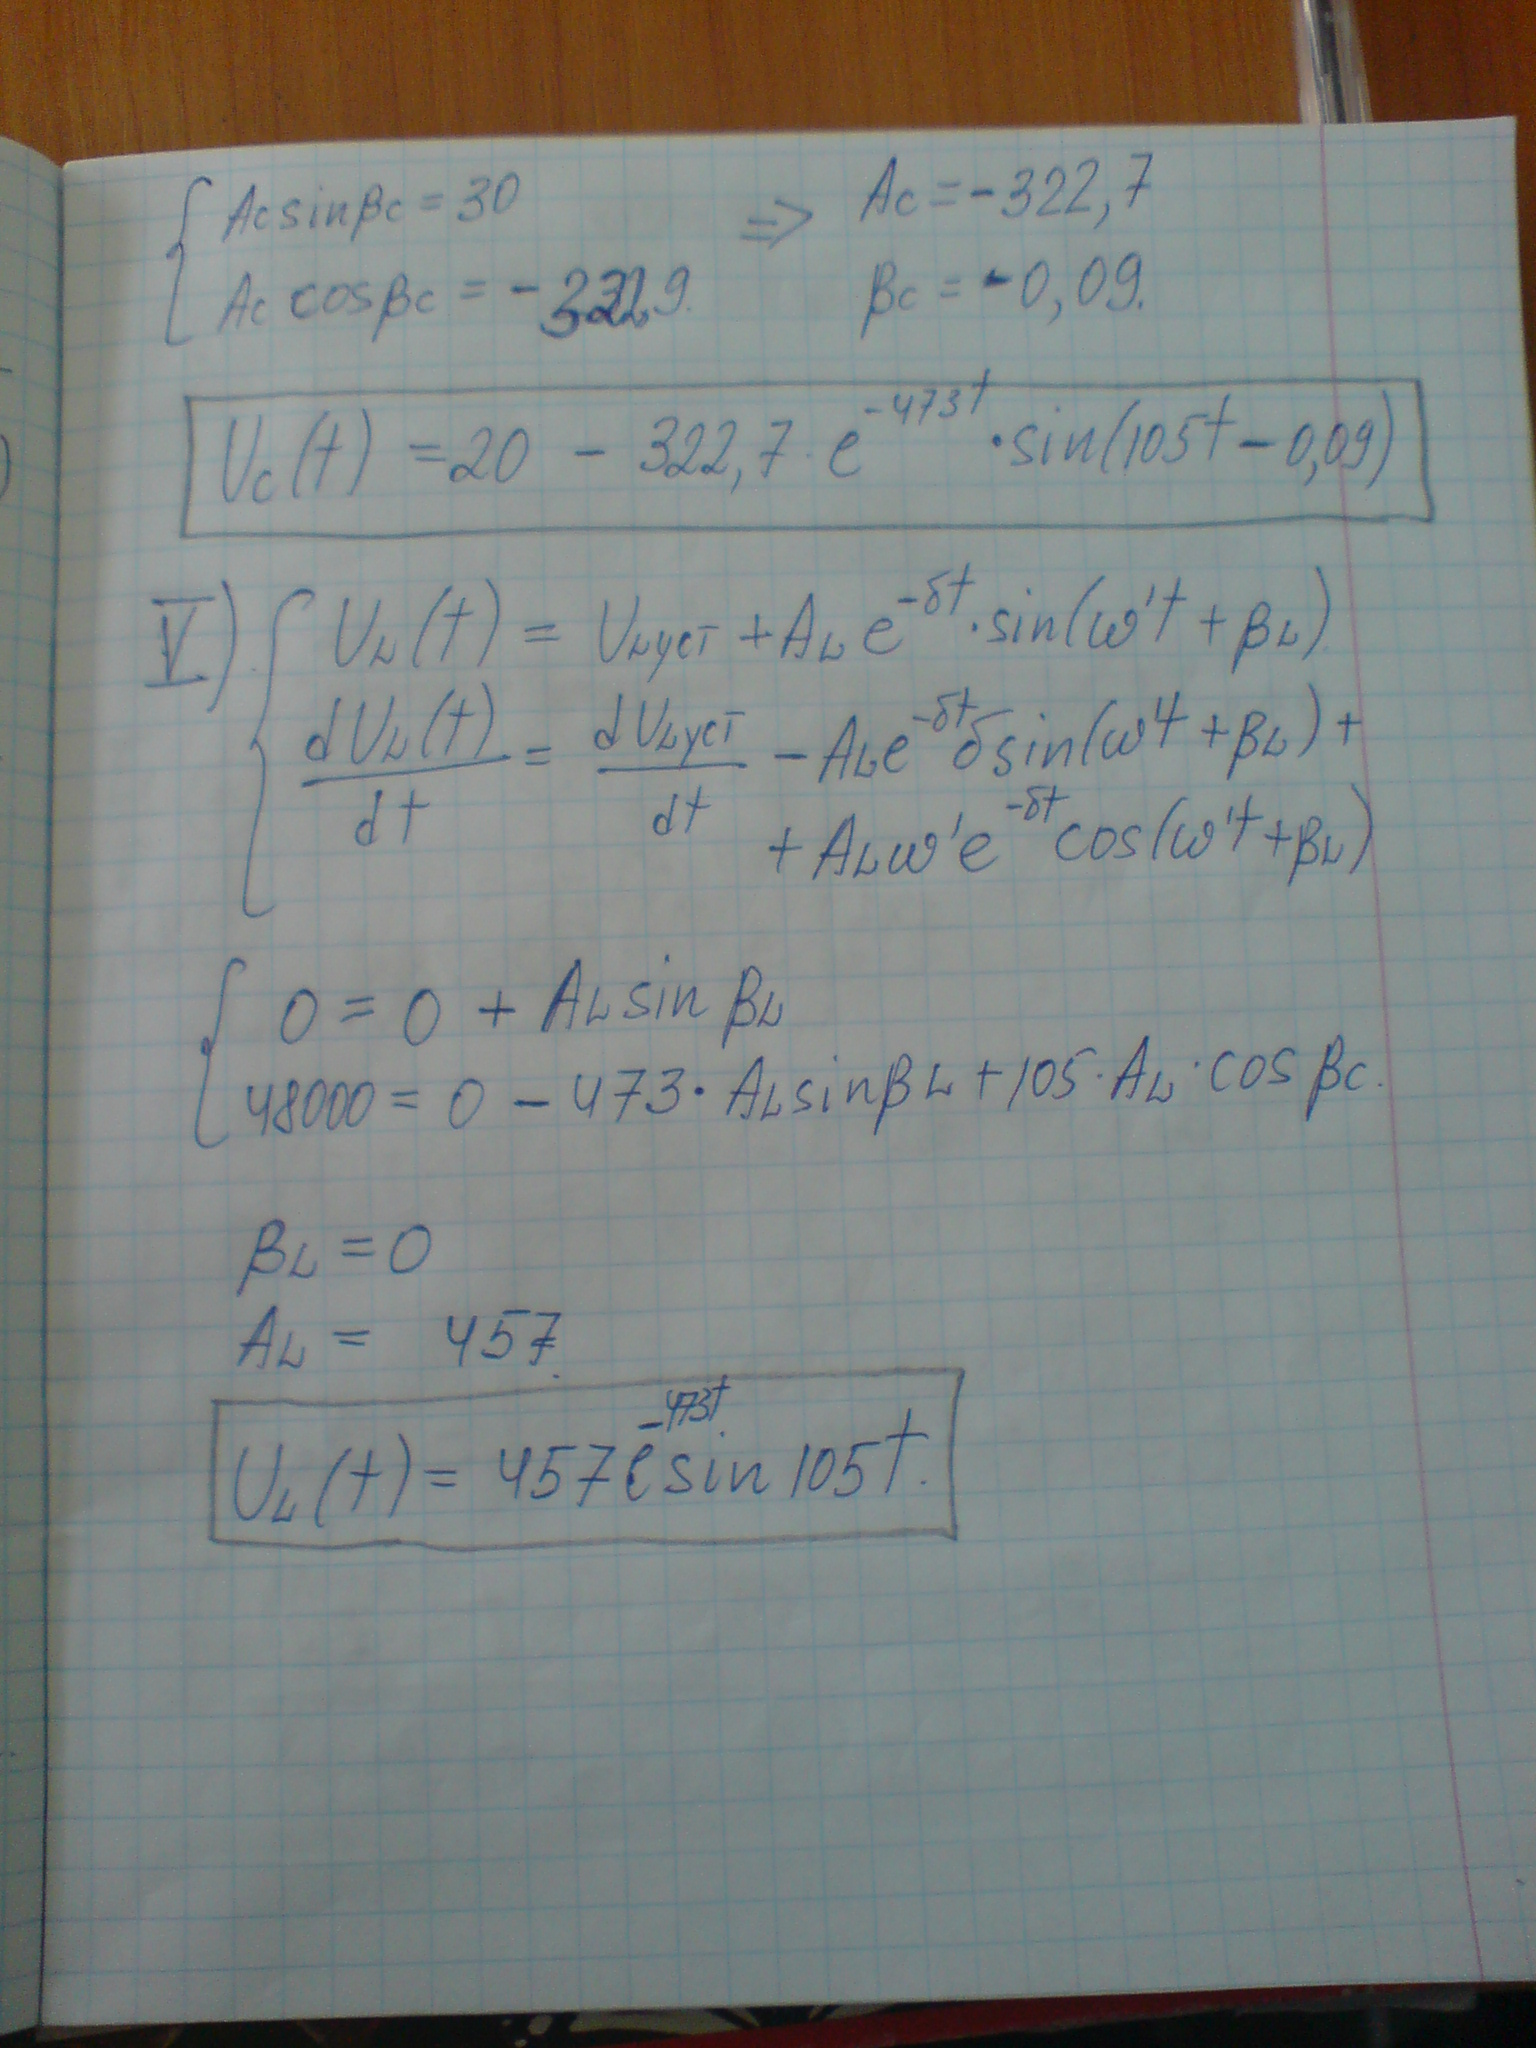 Ac sinβc = 30 => Ac = -322,7
Ac cosβc = - βc = -0,09.
Uc(t) = 20 - 322,7 · e^-473t · sin(105t - 0,09)
V) UL(t) = ULуст + AL e^-δt · sin(ω't + βL)
dUL(t)/dt = dULуст/dt - ALe^-δt δsin(ω't + βL) +
+ ALω'e^-δt cos(ω't + βL)
0 = 0 + AL sin βL
48000 = 0 - 473 · AL sinβL + 105 · AL · cos βc.
βL = 0
AL = 457.
UL(t) = 457e^-473t sin 105t.